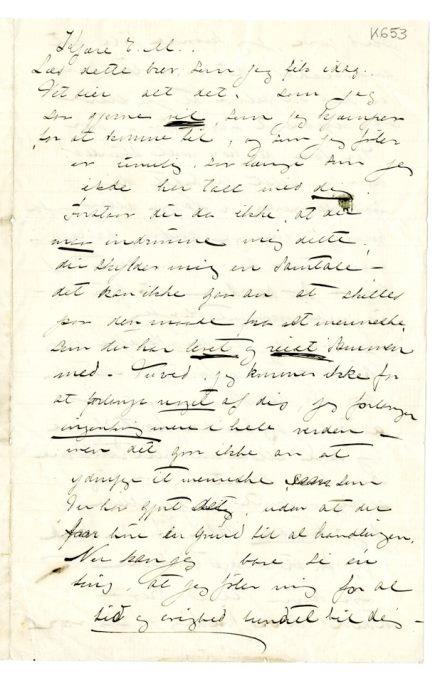 K653
Kjære E. M..
Læs dette brev, som jeg fik idag.
Det sier alt det, som jeg
saa gjerne vil, som jeg kjæmper
for at komme til, og som jeg føler
er umulig, saa længe som jeg
ikke har talt med dig.
Forstaar du da ikke, at du
maa indrømme mig dette,
du skylder mig en samtale –
det kan ikke gaa an at skilles
paa den maade fra et menneske,
som du har levet og reist sammen
med – Tuved, jeg kommer ikke for
at forlange noget af dig jeg forlanger
ingenting mere i hele verden –
men det gaar ikke an at
ødelægge et menneske som
Du har gjort det, uden at du
faar høre en grund til al handlingen.
Nu kan jeg bare si én
ting, at jeg føler mig for al
tid og evighed bundet til dig –